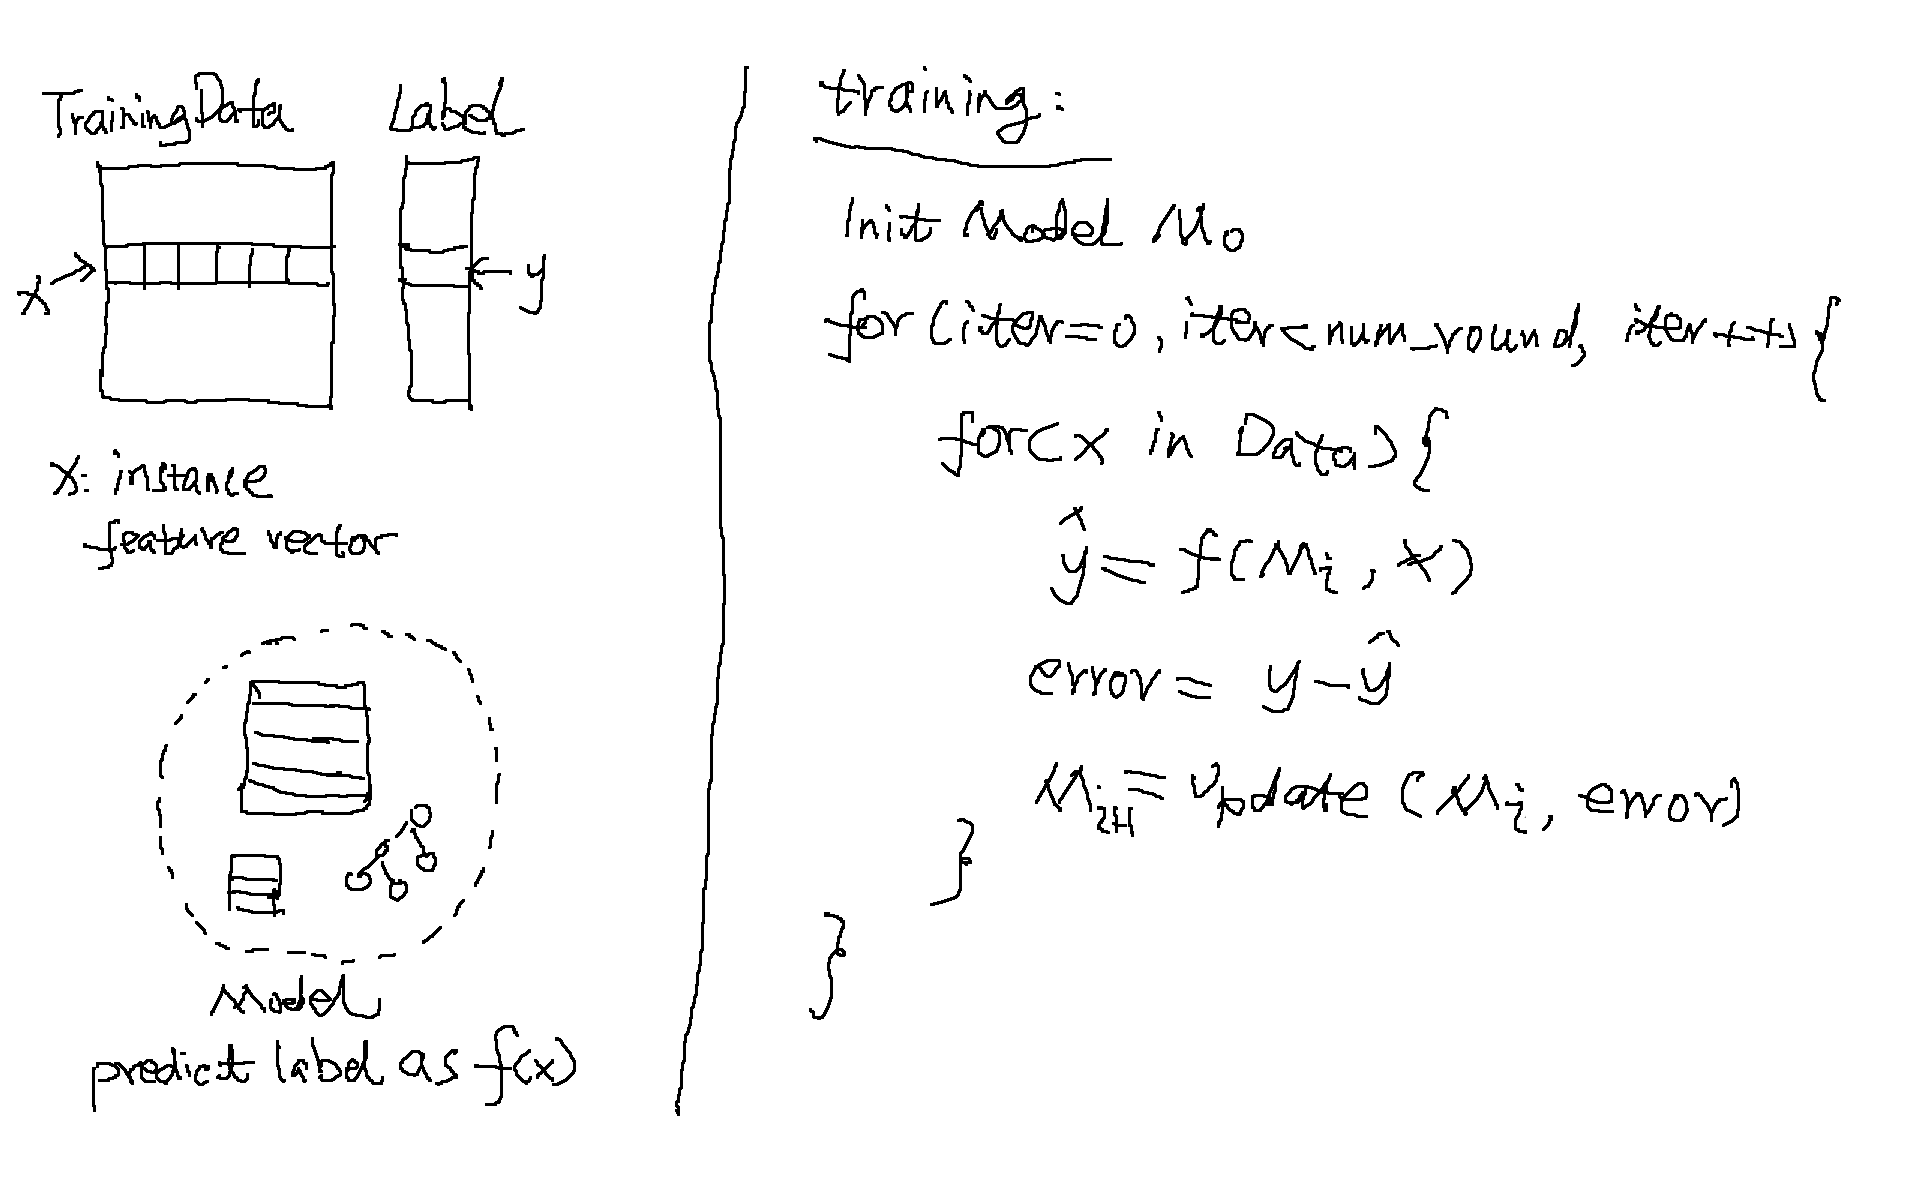 Training Data Label
x
y
x: instance
feature vector
Model
predict label as f(x)
training:
Init Model M₀
for (iter=0, iter<num_round, iter++) {
for(x in Data) {
ŷ = f(Mᵢ, x)
error = y-ŷ
Mᵢ₊₁ = update (Mᵢ, error)
}
}